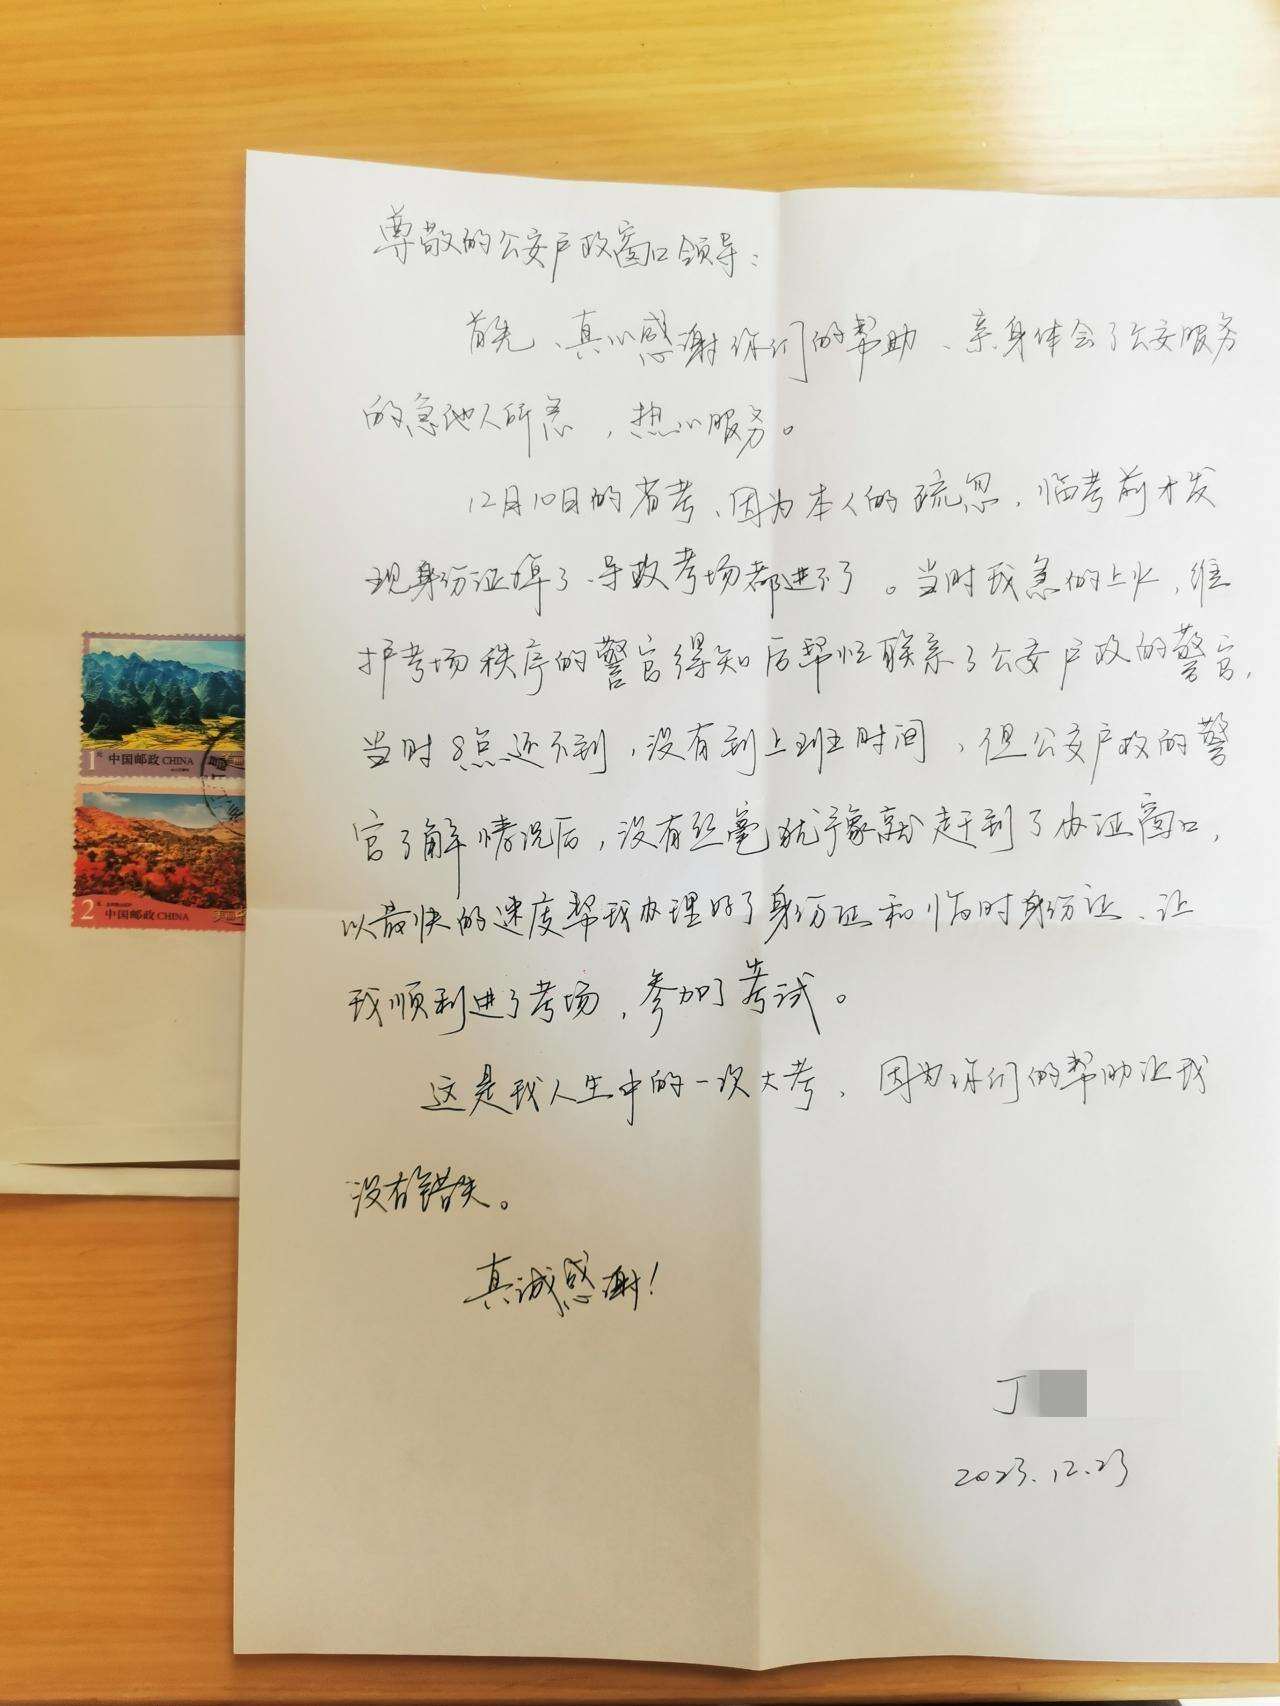 尊敬的公安户政窗口领导：
首先、真心感谢你们的帮助、亲身体会了公安服务
的急他人所急，热心服务。
12月10日的省考、因为本人的疏忽，临考前才发
现身份证掉了、导致考场都进不了。当时我急的上火，维
护考场秩序的警官得知后帮忙联系了公安户政的警官，
当时8点还不到，没有到上班时间，但公安户政的警
官了解情况后，没有丝毫犹豫就赶到了办证窗口，
以最快的速度帮我办理好了身份证和临时身份证、让
我顺利进了考场，参加了考试。
这是我人生中的一次大考，因为你们的帮助让我
没有错失。
真诚感谢！
丁
2023.12.23
1元 中国邮政 CHINA
2元 中国邮政 CHINA